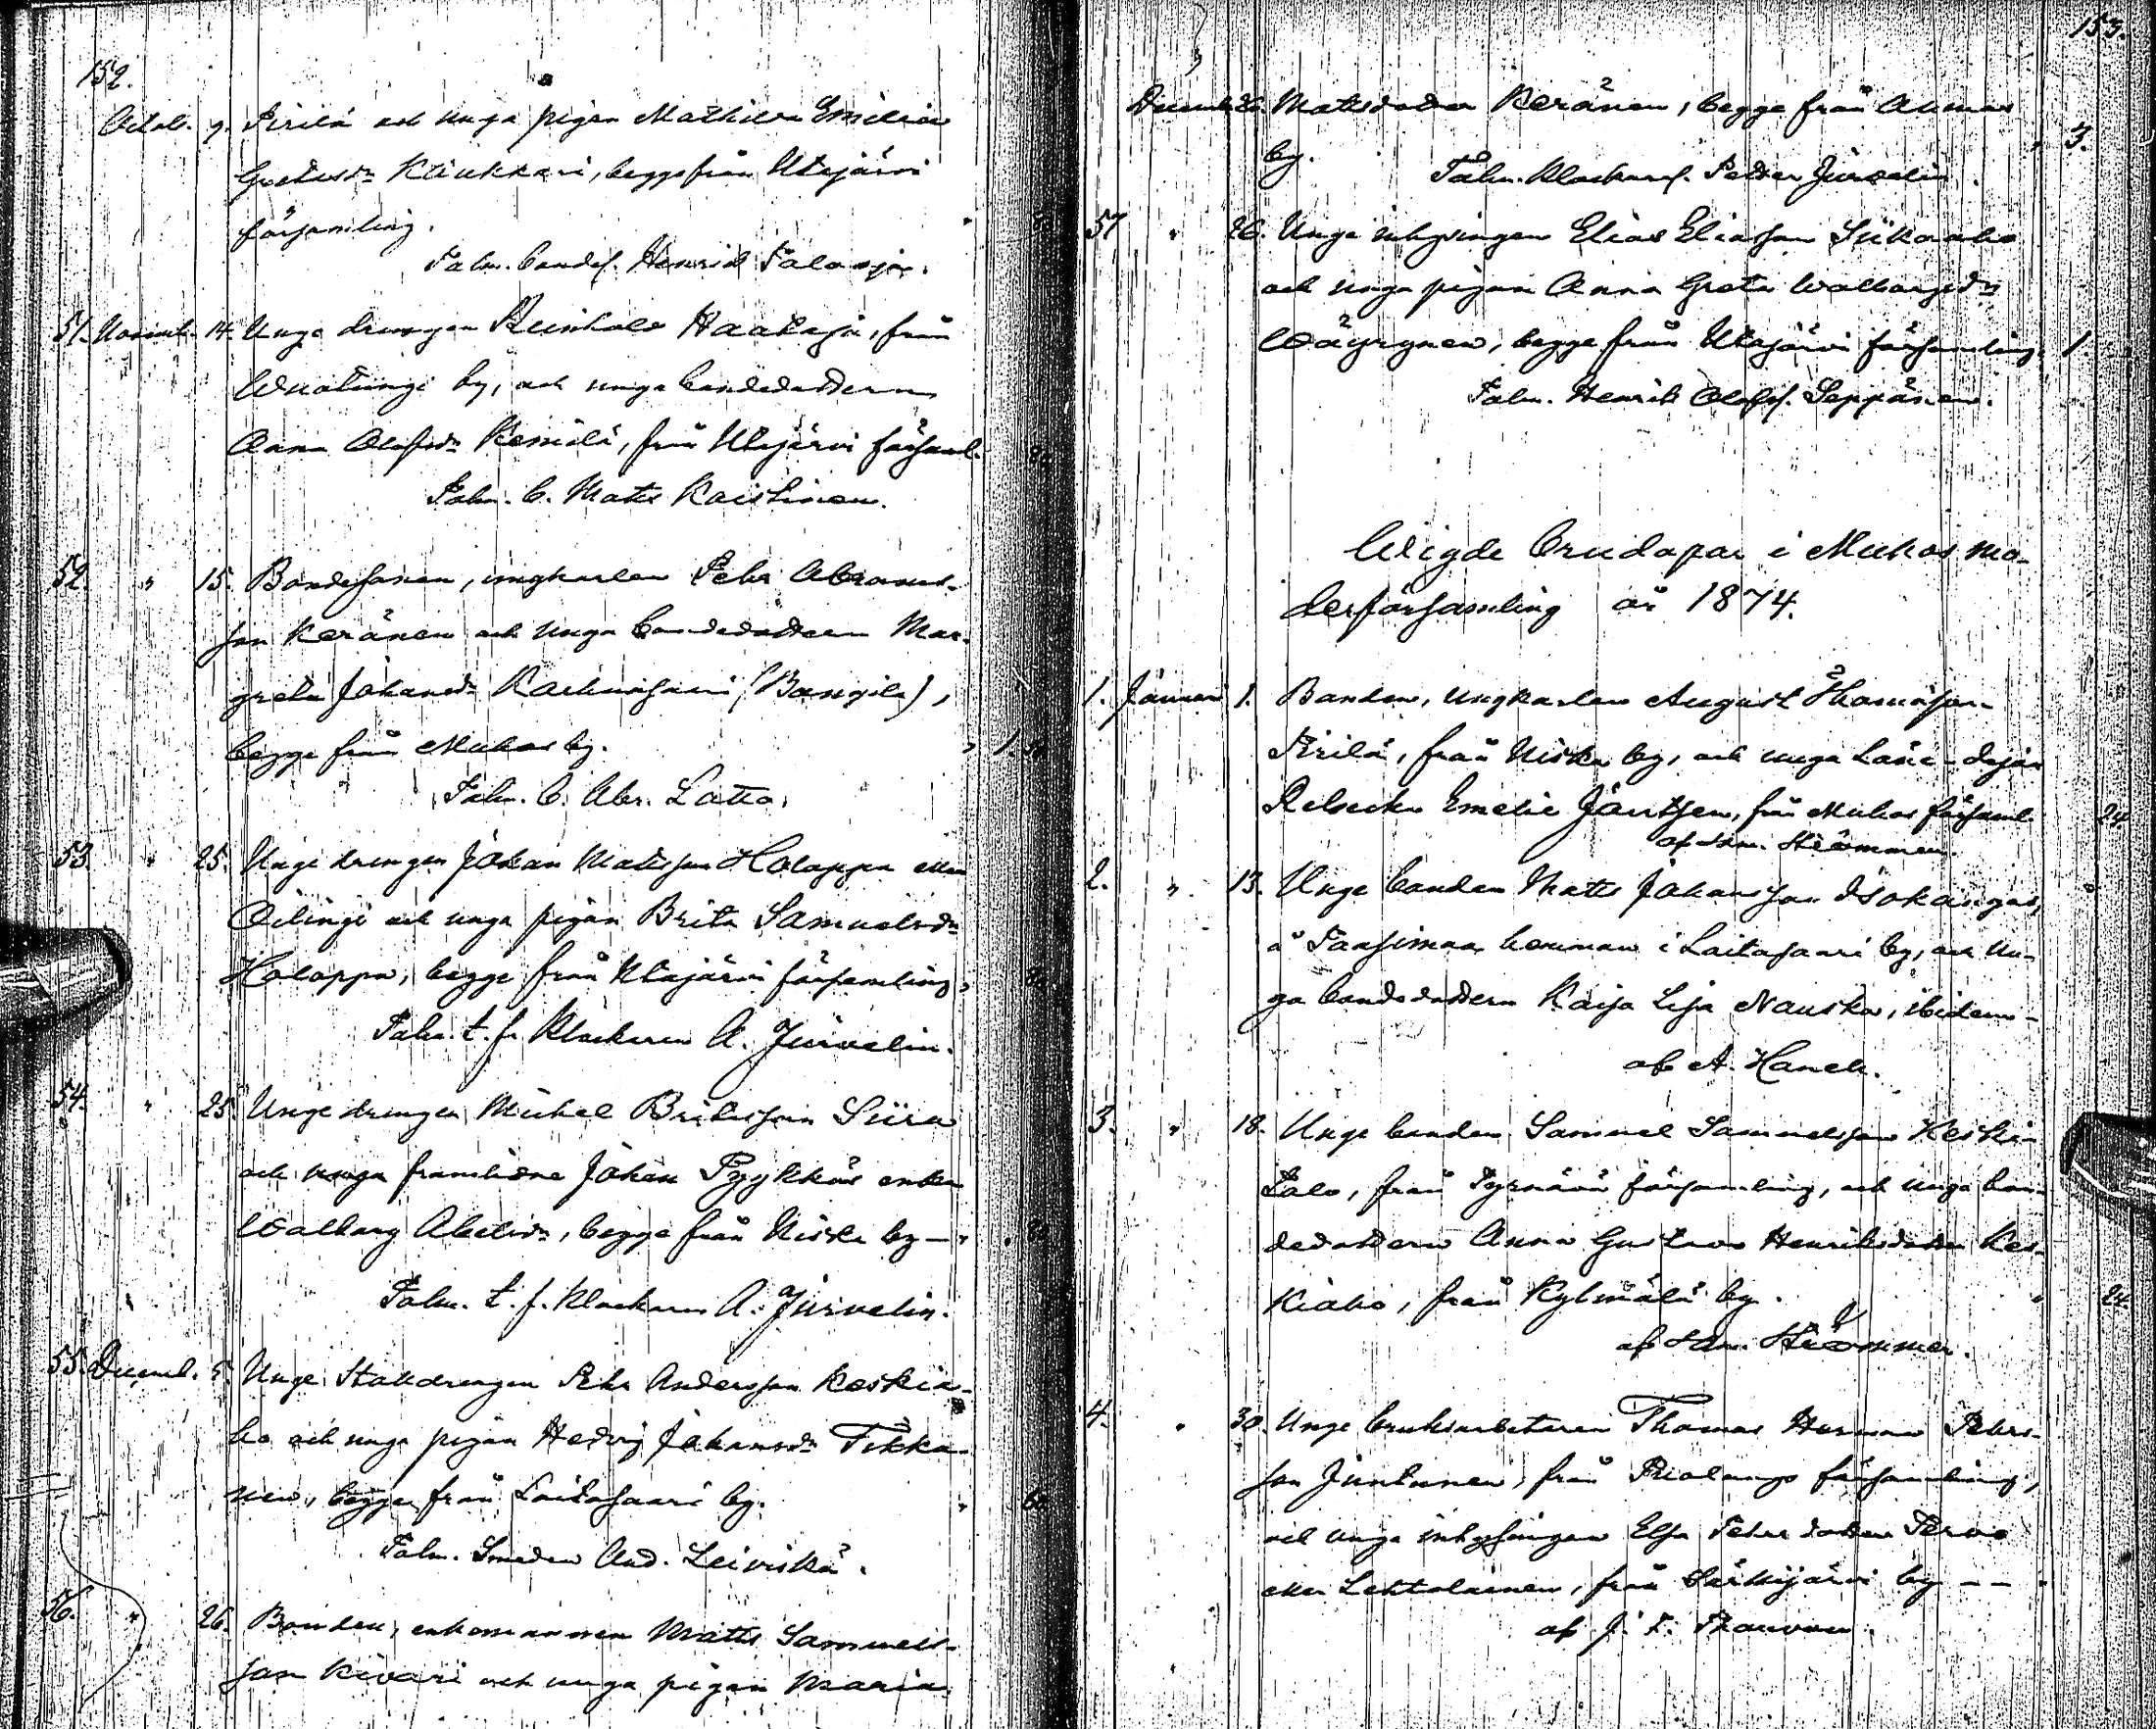 152.
Octob. 9. Pirilä och unga pigan Mathilda Emilia
Gustafsdr Kaukkari, begge från Utajärvi
församling.
Taln. bondes. Henrik Taloasja.
51. Novemb. 14. Unge drengen Reinhold Haataja, från
Wuotungi by, och unga bondedottern
Anna Olofsdr Kemilä, från Utajärvi församl. 80
Taln. b. Matts Kaistinen.
52. " 15. Bondesonen, ungkarlen Pehr Abrams-
son Keränen och unga bondedottern Mar-
greta Johansdr Karhunsaari (Bangila),
begge från Muhos by. 1.
Taln. b. Abr. Latto.
53. " 25. Unge drengen Johan Matsson Holappa eller
Oilingi och unga pigan Brita Samuelsdr
Holappa, begge från Utajärvi församling, 80
Taln. t. f. klockaren A. Jurvelin.
54. " 25. Unge drengen Michel Eriksson Siira
och unga framlidne Johan Pyykkös enka
Walborg Abelsdr, begge från Niska by — 80
Taln. t. f. klockaren A. Jurvelin.
55. Decemb. 5. Unge Stalldrengen Pehr Andersson Keskia-
ho och unga pigan Hedvig Johansdr Tikka-
nen, begge från Laitasaari by. 60
Taln. Smeden And. Leiviskä.
56. " 26. Bonden, enkomannen Matts Samuels-
son Kivari och unga pigan Maria
153.
Decemb. 26. Mattsdotter Keränen, begge från Ahmas
by. 3.
Taln. Klockares. Petter Jurvelin.
57 " 26. Unge inhysingen Elias Eliasson Siikaaho
och unga pigan Anna Greta Walborgsdr
Wäyrynen, begge från Utajärvi församling. 1.
Taln. Henrik Olofss. Seppänen.
Wigde Brudapar i Muhos mo-
derförsamling år 1874.
1. Januari 1. Bonden, ungkarlen August Thomasson
Pirilä, från Niska by, och unga
Rebecka Emelie Jäntsen, från Muhos församl. 24
af Sam. Strömmer.
2. " 13. Unge bonden Matts Johansson Isokangas,
å Tansimaa hemman i Laitasaari by, och un-
ga bondedottern Kaija Lisa Nauska, ibidem –
af A. Hanell.
3. " 18. Unge bonden Samuel Samuelsson Keski-
Talo, från Tyrnävä församling, och unga bon-
dedottern Anna Gustava Henriksdotter Kes-
kiaho, från Kylmälä by. 24.
af Sam. Strömmer.
4. " 30. Unge bruksarbetaren Thomas Herman Pehrs-
son Juntunen, från församling,
och unga inhysingen Elsa Pehrsdotter Tervo
eller Lehtolainen, från Särkijärvi by — —
af J. F. Thauvon.